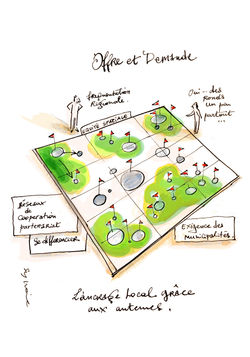 Offre et Demande
fragmentation
Régionale.
Oui... des
fonds
un peu
partout...
EQUITE SPATIALE
Réseaux de
Cooperation
partenariat
Se differencier
Exigence des
Municipalités.
L'ancrage Local grâce
aux antennes.